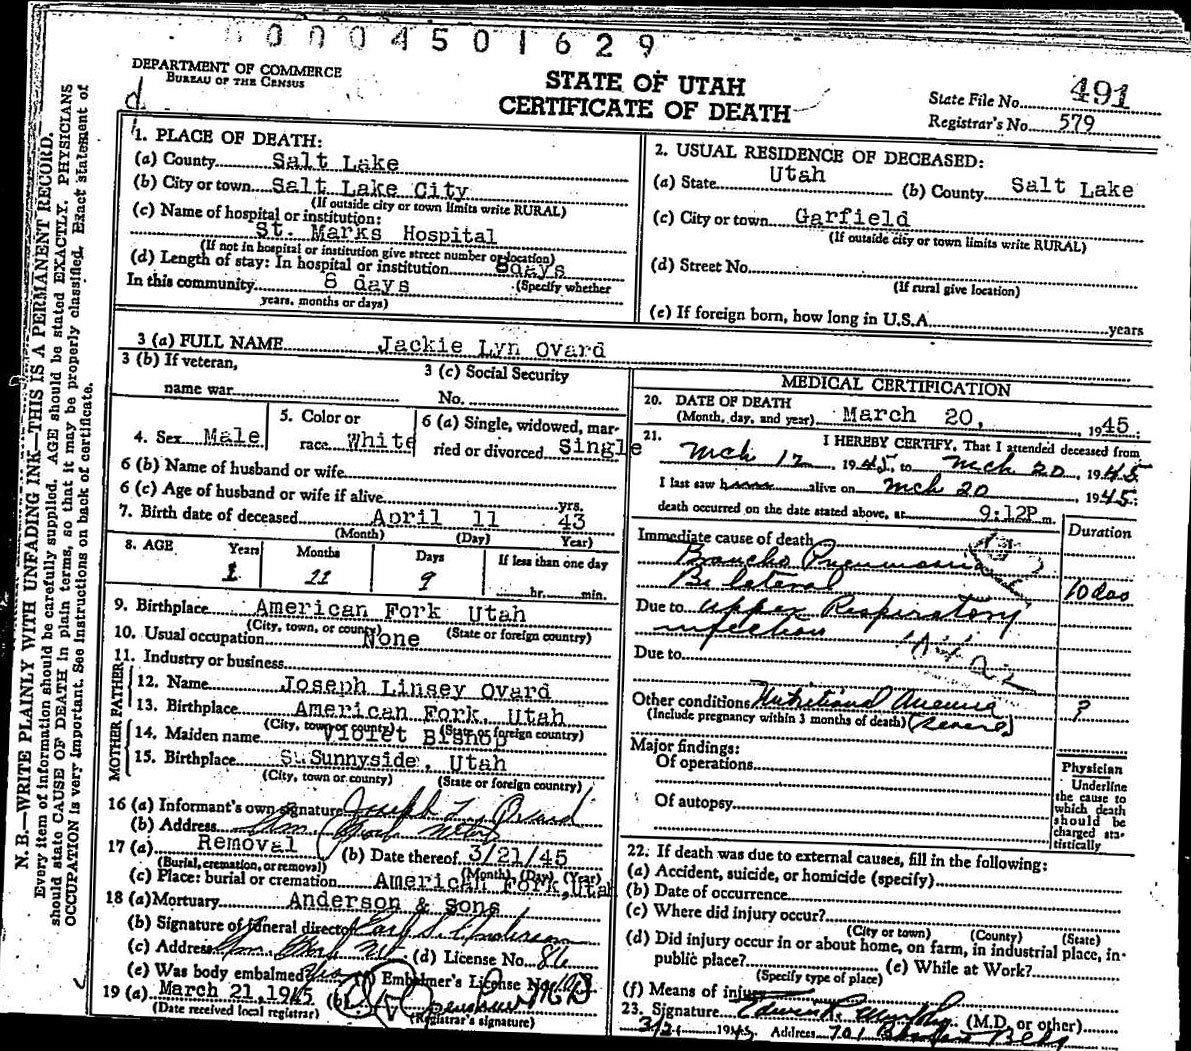 0004501629
DEPARTMENT OF COMMERCE
BUREAU OF THE CENSUS
STATE OF UTAH
CERTIFICATE OF DEATH
State File No. 491
Registrar's No. 579
N. B.—WRITE PLAINLY WITH UNFADING INK—THIS IS A PERMANENT RECORD.
Every item of information should be carefully supplied. AGE should be stated EXACTLY. PHYSICIANS
should state CAUSE OF DEATH in plain terms, so that it may be properly classified. Exact statement of
OCCUPATION is very important. See instructions on back of certificate.
1. PLACE OF DEATH:
(a) County Salt Lake
(b) City or town Salt Lake City
(If outside city or town limits write RURAL)
(c) Name of hospital or institution:
St. Marks Hospital
(If not in hospital or institution give street number or location)
(d) Length of stay: In hospital or institution 8days
In this community 8 days (Specify whether
years, months or days)
2. USUAL RESIDENCE OF DECEASED:
(a) State Utah (b) County Salt Lake
(c) City or town Garfield
(If outside city or town limits write RURAL)
(d) Street No.
(If rural give location)
(e) If foreign born, how long in U.S.A. years
3 (a) FULL NAME Jackie Lyn Ovard
3 (b) If veteran,
name war
3 (c) Social Security
No.
4. Sex Male
5. Color or
race White
6 (a) Single, widowed, mar-
ried or divorced Single
6 (b) Name of husband or wife
6 (c) Age of husband or wife if alive yrs.
7. Birth date of deceased April 11 43
(Month) (Day) Year)
8. AGE Years Months Days If less than one day
1 11 9 hr. min.
9. Birthplace American Fork Utah
(City, town, or county) (State or foreign country)
10. Usual occupation None
11. Industry or business
FATHER
12. Name Joseph Linsey Ovard
13. Birthplace American Fork, Utah
(City, town or county) (State or foreign country)
MOTHER
14. Maiden name Violet Bishop
15. Birthplace S. Sunnyside, Utah
(City, town or county) (State or foreign country)
16 (a) Informant's own signature Joseph L. Ovard
(b) Address Am. Fork Utah
17 (a) Removal (b) Date thereof 3/21/45
(Burial, cremation, or removal) (Month) (Day) (Year)
(c) Place: burial or cremation American Fork, Utah
18 (a) Mortuary Anderson & Sons
(b) Signature of funeral director Earl S. Anderson
(c) Address Am. Fork Ut (d) License No. 86
(e) Was body embalmed Yes Embalmer's License No.
19 (a) March 21, 1945 (b)
(Date received local registrar) (Registrar's signature)
MEDICAL CERTIFICATION
20. DATE OF DEATH
(Month, day, and year) March 20, 1945.
21. I HEREBY CERTIFY, That I attended deceased from
Mch 12, 1945, to Mch 20, 1945
I last saw h alive on Mch 20, 1945.
death occurred on the date stated above, at 9:12P m.
Duration
Immediate cause of death
Broncho Pneumonia
Bilateral 10 das
Due to Upper Respiratory
infection
Due to
Other conditions Nutritional Anemia ?
(Include pregnancy within 3 months of death) (severe)
Major findings:
Of operations
Of autopsy
Physician
Underline
the cause to
which death
should be
charged sta-
tistically
22. If death was due to external causes, fill in the following:
(a) Accident, suicide, or homicide (specify)
(b) Date of occurrence
(c) Where did injury occur?
(City or town) (County) (State)
(d) Did injury occur in or about home, on farm, in industrial place, in-
public place? (e) While at Work?
(Specify type of place)
(f) Means of injury
23. Signature Edwin R. Murphy (M.D. or other)
1945 Address 701 Bldg